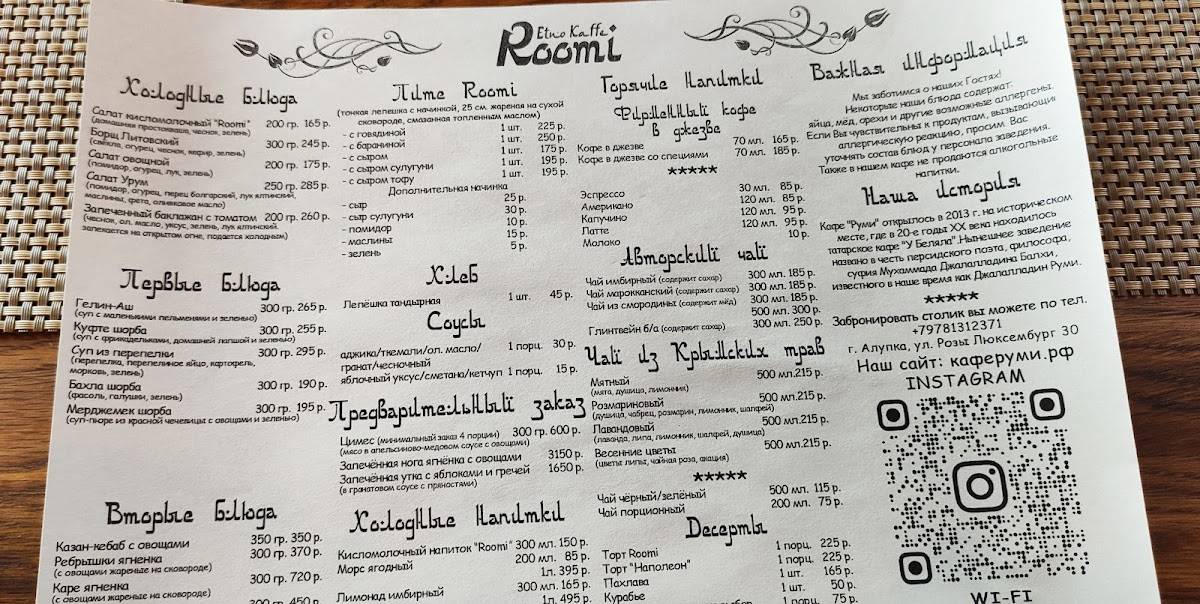 Etno Kaffe
Roomi
Холодные блюда
Салат кисломолочный "Roomi" 200 гр. 165 р.
(домашняя простокваша, чеснок, зелень)
Борщ Литовский 300 гр. 245 р.
(свёкла, огурец, чеснок, кефир, зелень)
Салат овощной 200 гр. 175 р.
(помидор, огурец, лук, зелень)
Салат Урум 250 гр. 285 р.
(помидор, огурец, перец болгарский, лук ялтинский,
маслины, фета, оливковое масло)
Запеченный баклажан с томатом 200 гр. 260 р.
(чеснок, ол. масло, уксус, зелень, лук ялтинский.
запекается на открытом огне, подается холодным)
Первые блюда
Гелин-Аш 300 гр. 265 р.
(суп с маленькими пельменями и зеленью)
Куфте шорба 300 гр. 255 р.
(суп с фрикадельками, домашней лапшой и зеленью)
Суп из перепелки 300 гр. 295 р.
(перепелка, перепелиное яйцо, картофель,
морковь, зелень)
Бахла шорба 300 гр. 190 р.
(фасоль, галушки, зелень)
Мерджемек шорба 300 гр. 195 р.
(суп-пюре из красной чечевицы с овощами и зеленью)
Вторые блюда
Казан-кебаб с овощами 350 гр. 350 р.
Ребрышки ягненка 300 гр. 370 р.
(с овощами жареные на сковороде)
Каре ягненка 300 гр. 720 р.
(с овощами жареные на сковороде)
300 гр. 450 р.
Пите Roomi
(тонкая лепешка с начинкой, 25 см. жареная на сухой
сковороде, смазанная топленным маслом)
- с говядиной 1 шт. 225 р.
- с бараниной 1 шт. 250 р.
- с сыром 1 шт. 175 р.
- с сыром сулугуни 1 шт. 195 р.
- с сыром тофу 1 шт. 195 р.
Дополнительная начинка
- сыр 25 р.
- сыр сулугуни 30 р.
- помидор 10 р.
- маслины 15 р.
- зелень 5 р.
Хлеб
Лепёшка тандырная 1 шт. 45 р.
Соусы
аджика/ткемали/ол. масло/ 1 порц. 30 р.
гранат/чесночный
яблочный уксус/сметана/кетчуп 1 порц. 15 р.
Предварительный заказ
Цимес (минимальный заказ 4 порции) 300 гр. 600 р.
(мясо в апельсиново-медовом соусе с овощами)
Запечённая нога ягнёнка с овощами 3150 р.
Запечённая утка с яблоками и гречей 1650 р.
(в гранатовом соусе с пряностями)
Холодные напитки
Кисломолочный напиток "Roomi" 300 мл. 150 р.
Морс ягодный 200 мл. 85 р.
1л. 395 р.
Лимонад имбирный 300 мл. 165 р.
1л. 495 р.
Горячие напитки
Фирменный кофе
в джезве
Кофе в джезве 70 мл. 165 р.
Кофе в джезве со специями 70 мл. 185 р.
*****
Эспрессо 30 мл. 85 р.
Американо 120 мл. 85 р.
Капучино 120 мл. 95 р.
Латте 120 мл. 95 р.
Молоко 10 р.
Авторский чай
Чай имбирный (содержит сахар) 300 мл. 185 р.
Чай марокканский (содержит сахар) 300 мл. 185 р.
Чай из смородины (содержит мёд) 300 мл. 185 р.
500 мл. 300 р.
Глинтвейн б/а (содержит сахар) 300 мл. 250 р.
Чай из Крымских трав
Мятный 500 мл.215 р.
(мята, душица, лимонник)
Розмариновый 500 мл.215 р.
(душица, чабрец, розмарин, лимонник, шалфей)
Лавандовый 500 мл.215 р.
(лаванда, липа, лимонник, шалфей, душица)
Весенние цветы 500 мл.215 р.
(цветы: липы, чайная роза, акация)
*****
Чай чёрный/зелёный 500 мл. 115 р.
Чай порционный 200 мл. 75 р.
Десерты
Торт Roomi 1 порц. 225 р.
Торт "Наполеон" 1 порц. 225 р.
Пахлава 1 шт. 165 р.
Курабье 1 шт. 50 р.
1 порц. 75 р.
Важная информация
Мы заботимся о наших Гостях!
Некоторые наши блюда содержат:
яйца, мёд, орехи и другие возможные аллергены.
Если Вы чувствительны к продуктам, вызывающих
аллергическую реакцию, просим Вас
уточнять состав блюд у персонала заведения.
Также в нашем кафе не продаются алкогольные
напитки.
Наша история
Кафе "Руми" открылось в 2013 г. на историческом
месте, где в 20-е годы XX века находилось
татарское кафе "У Беляла".Нынешнее заведение
названо в честь персидского поэта, философа,
суфия Мухаммада Джалалладина Балхи,
известного в наше время как Джалалладин Руми.
*****
Забронировать столик вы можете по тел.
+79781312371
г. Алупка, ул. Розы Люксембург 30
Наш сайт: каферуми.рф
INSTAGRAM
WI-FI